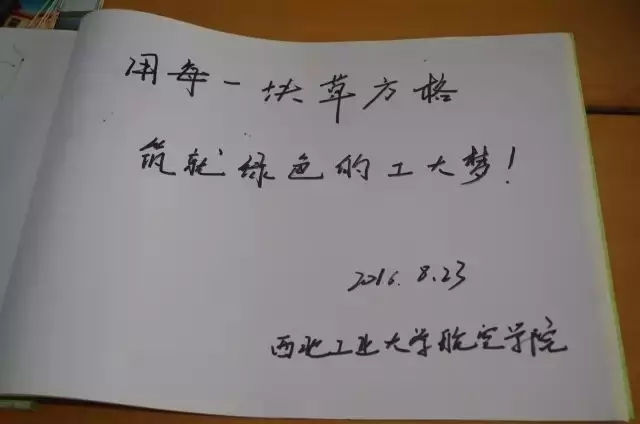 用每一块草方格
筑就绿色的工大梦！
2016.8.23
西北工业大学航空学院